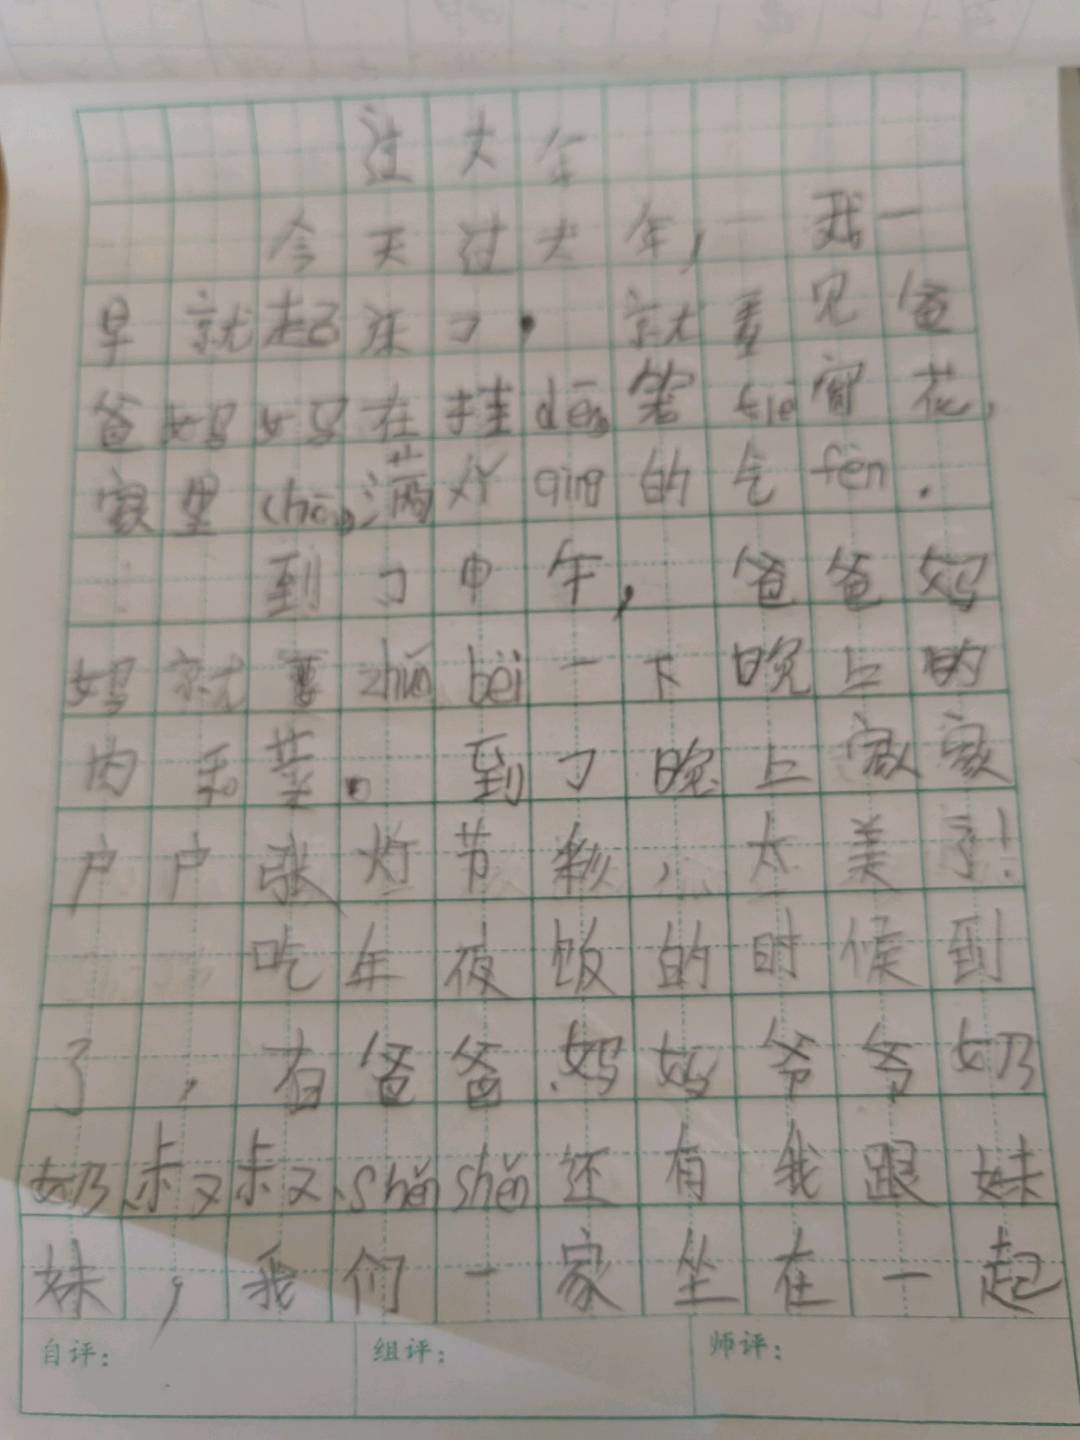 过大年
今天过大年，一我一
早就起来了。就看见爸
爸妈妈在挂dēng笼tiē窗花，
家里chōng满xǐ qìng的气fēn.
到了中午，爸爸妈
妈就要zhǔn bèi一下晚上的
肉和菜。到了晚上家家
户户张灯节彩，太美了！
吃年夜饭的时候到
了，有爸爸、妈妈爷爷奶
奶、叔叔、shěn shěn还有我跟妹
妹，我们一家坐在一起
自评：
组评：
师评：